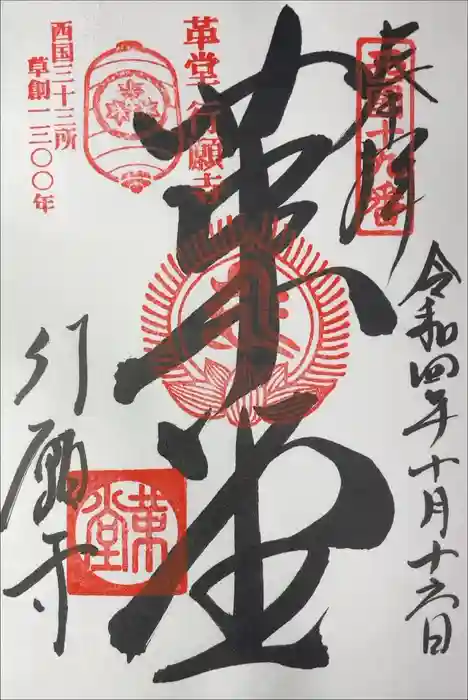 奉拝
西国十九番
令和四年十月十六日
革堂
革堂行願寺
西国三十三所
草創一三〇〇年
行願寺
革堂